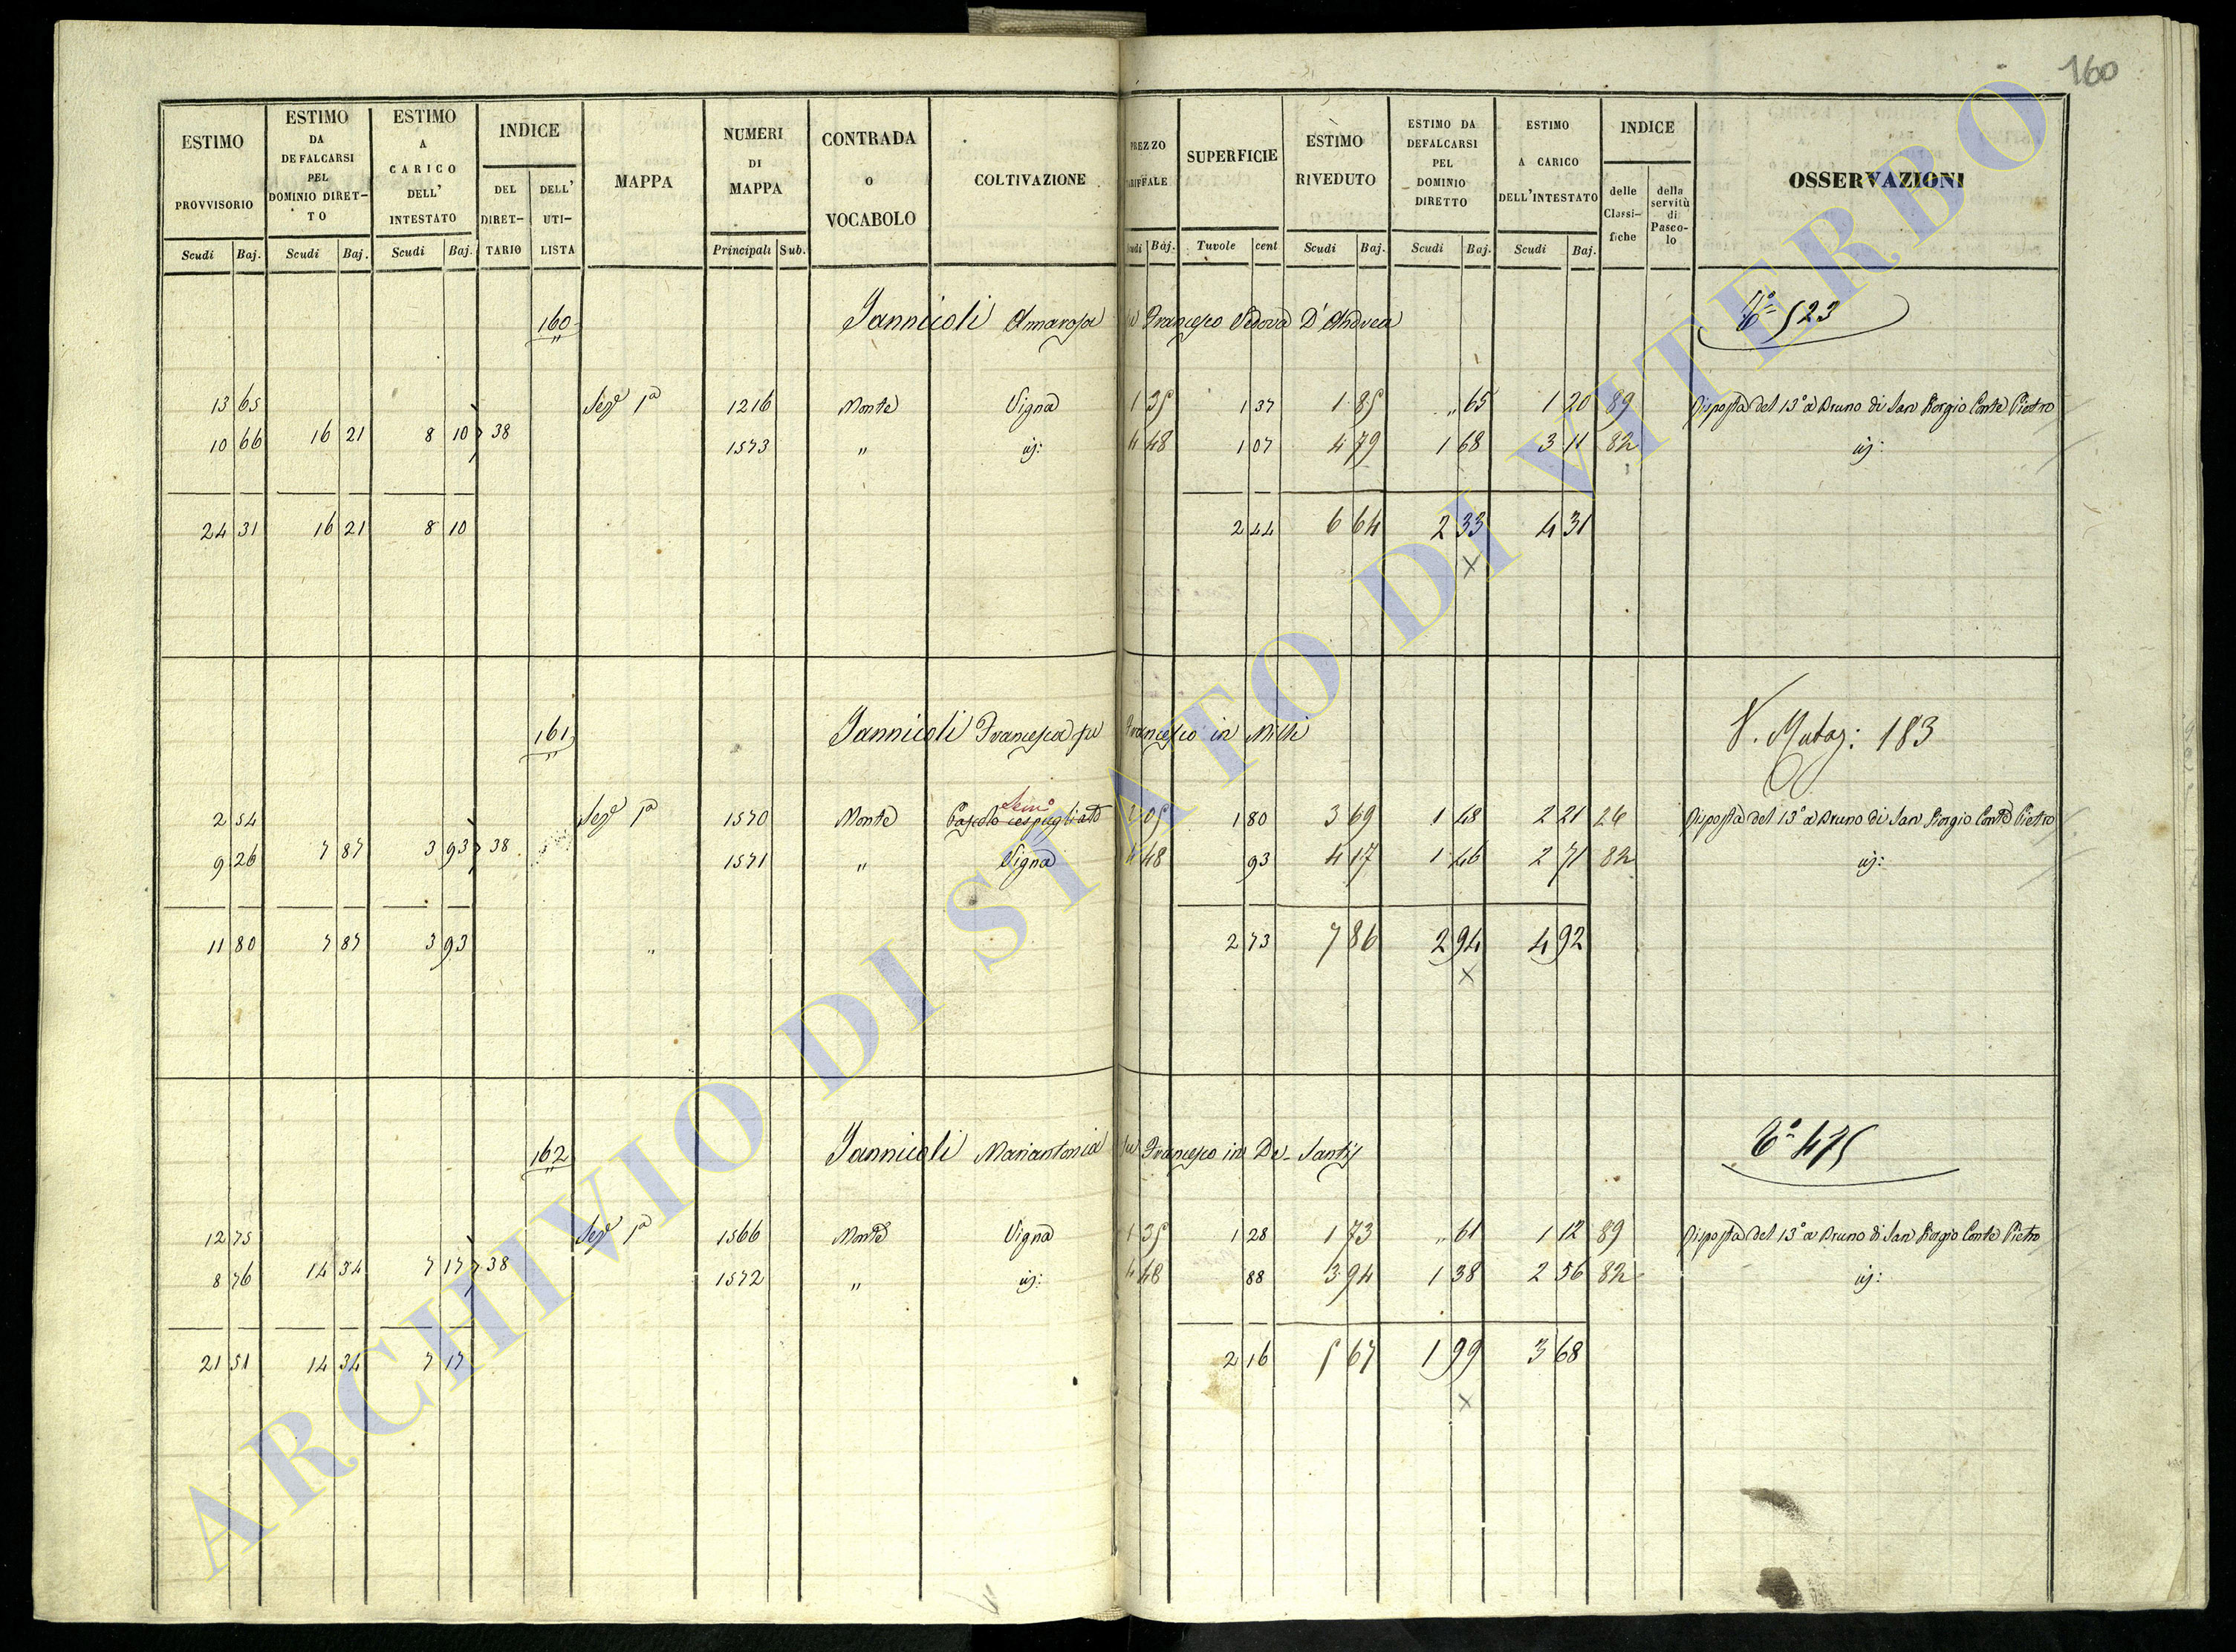 160
ESTIMO PROVVISORIO
ESTIMO DA DEFALCARSI PEL DOMINIO DIRET-TO
ESTIMO A CARICO DELL' INTESTATO
INDICE
DEL DIRET-TARIO
DELL' UTI-LISTA
MAPPA
NUMERI DI MAPPA
CONTRADA o VOCABOLO
COLTIVAZIONE
PREZZO TARIFFALE
SUPERFICIE
ESTIMO RIVEDUTO
ESTIMO DA DEFALCARSI PEL DOMINIO DIRETTO
ESTIMO A CARICO DELL'INTESTATO
INDICE
delle Classi-fiche
della servitù di Pasco-lo
OSSERVAZIONI
Scudi Baj. Scudi Baj. Scudi Baj. Principali Sub. Scudi Baj. Tavole cent Scudi Baj. Scudi Baj. Scudi Baj.
160 Jannicoli Annarosa fu Francesco Vedova D'Andrea Vo 523
13 65 Seze 1a 1216 Monte Vigna 1 35 1 37 1 85 " 65 1 20 89 Risposta del 13o a Bruno di San Giorgio Conte Pietro
10 66 16 21 8 10 38 1573 " id: 4 48 1 07 4 79 1 68 3 11 82 id:
24 31 16 21 8 10 2 44 6 64 2 33 4 31
x
161 Jannicoli Francesca fu Francesco in Milli V. Mutaz: 183
Semo
2 54 Seze 1a 1570 Monte Pascolo cespugliato 2 05 1 80 3 69 1 48 2 21 26 Risposta del 13o a Bruno di San Giorgio Conte Pietro
9 26 7 87 3 93 38 1571 " Vigna 4 48 93 4 17 1 46 2 71 82 id:
11 80 7 87 3 93 2 73 7 86 2 94 4 92
x
162 Jannicoli Mariantonia fu Francesco in De-Santis Vo 475
12 75 Seze 1a 1566 Monte Vigna 1 35 1 28 1 73 " 61 1 12 89 Risposta del 13o a Bruno di San Giorgio Conte Pietro
8 76 14 34 7 17 38 1572 " id: 4 48 88 3 94 1 38 2 56 82 id:
21 51 14 34 7 17 2 16 5 67 1 99 3 68
x
ARCHIVIO DI STATO DI VITERBO